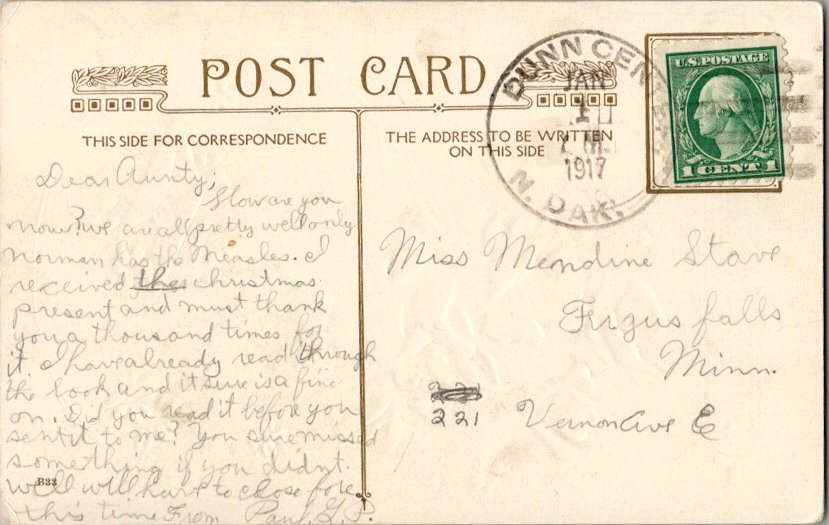 POST CARD
THIS SIDE FOR CORRESPONDENCE
THE ADDRESS TO BE WRITTEN
ON THIS SIDE
DUNN CEN
JAN
1
1917
N. DAK.
U.S. POSTAGE
1 CENT 1
Dear Aunty;
How are you
now? we are all pretty well only
Norman has the Measles. I
received the christmas
present and must thank
you a thousand times for
it. I have already read through
the book and it sure is a fine
on. Did you read it before you
sent it to me? You sure missed
something if you didnt.
well will have to close for
this time From Paul. G. S.
B33
Miss Mendine Stave
Fergus falls
Minn.
221 Vernon Ave E